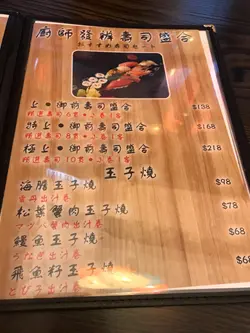 廚師發辦壽司盛合
おすすめ寿司セット
上・御前壽司盛合 $138
特上・御前壽司盛合 $168
極上・御前壽司盛合 $218
玉子燒
海膽玉子燒 $98
松葉蟹肉玉子燒 $78
鰻魚玉子燒 $68
うなぎ出汁巻
飛魚籽玉子燒 $68
とびこ出汁巻